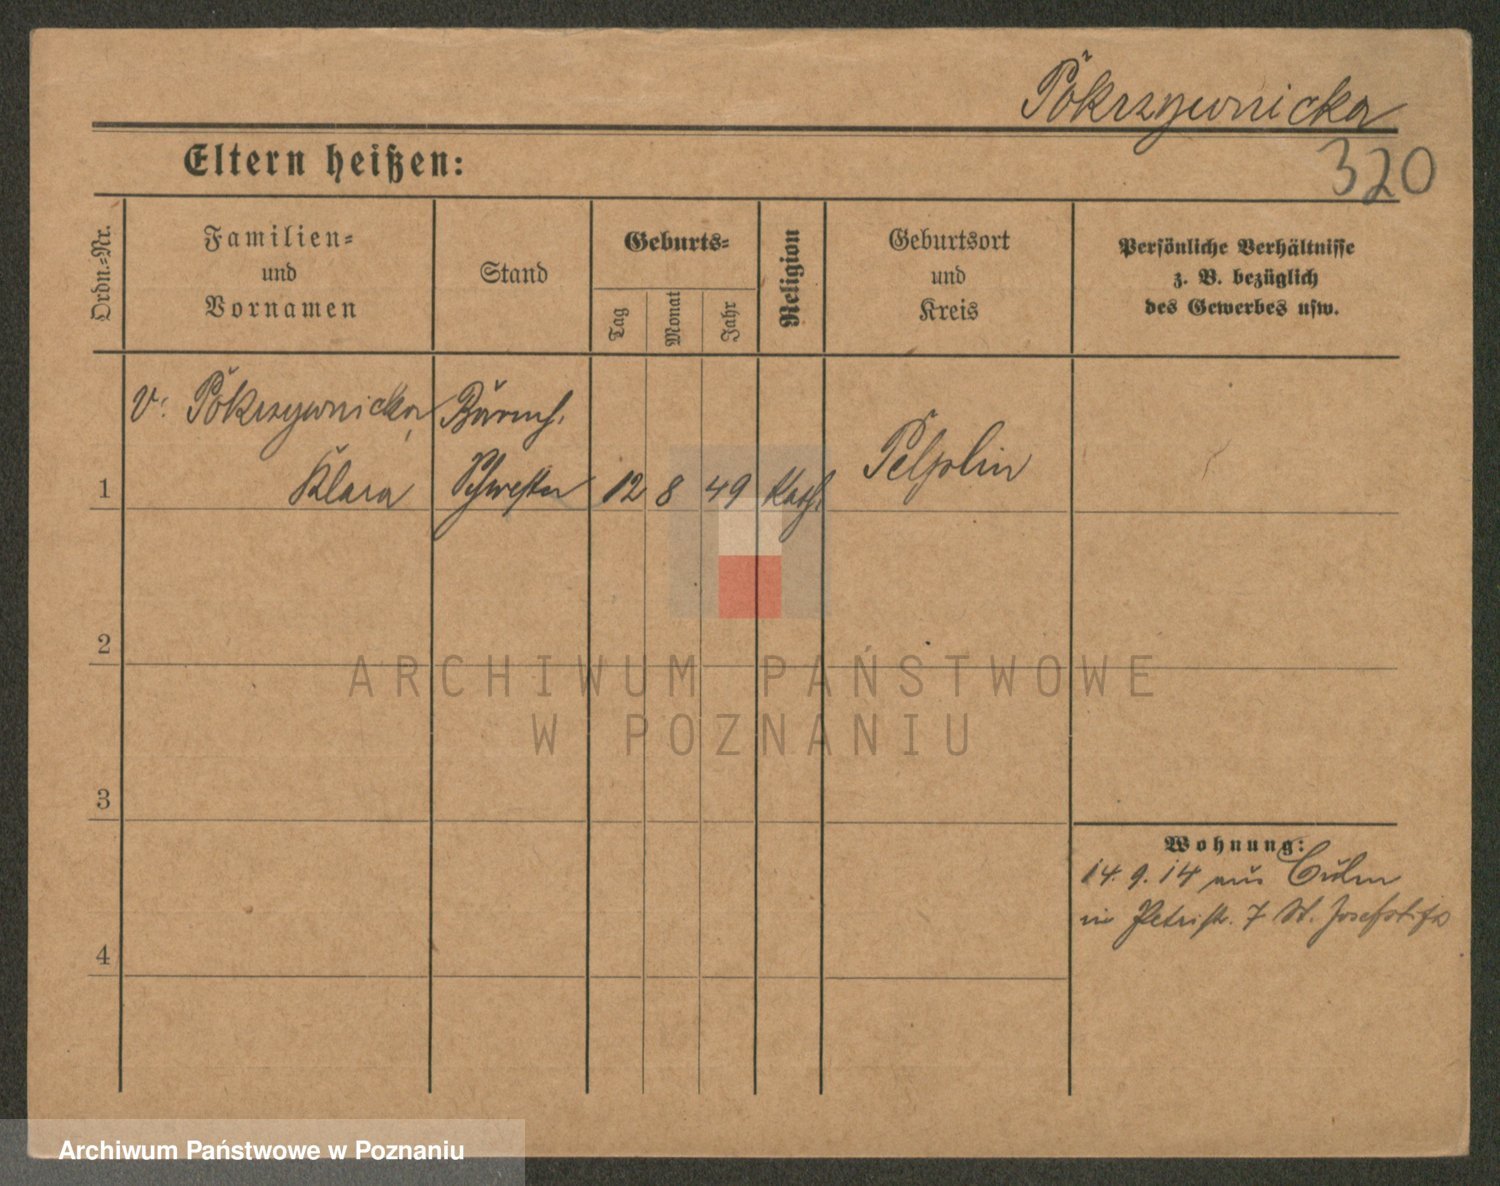 Pokrzywnicka
320
Eltern heißen:
Ordn.=Nr.
Familien=
und
Vornamen
Stand
Geburts=
Tag
Monat
Jahr
Religion
Geburtsort
und
Kreis
Persönliche Verhältnisse
z. B. bezüglich
des Gewerbes usw.
v: Pokrzywnicka,
Klara
Barmh.
Schwester
1
12
8
49
Kath.
Pelplin
2
3
4
Wohnung:
14.9.14 aus Culm
in Petristr. 7 St. Josefstift
ARCHIWUM PAŃSTWOWE
W POZNANIU
Archiwum Państwowe w Poznaniu